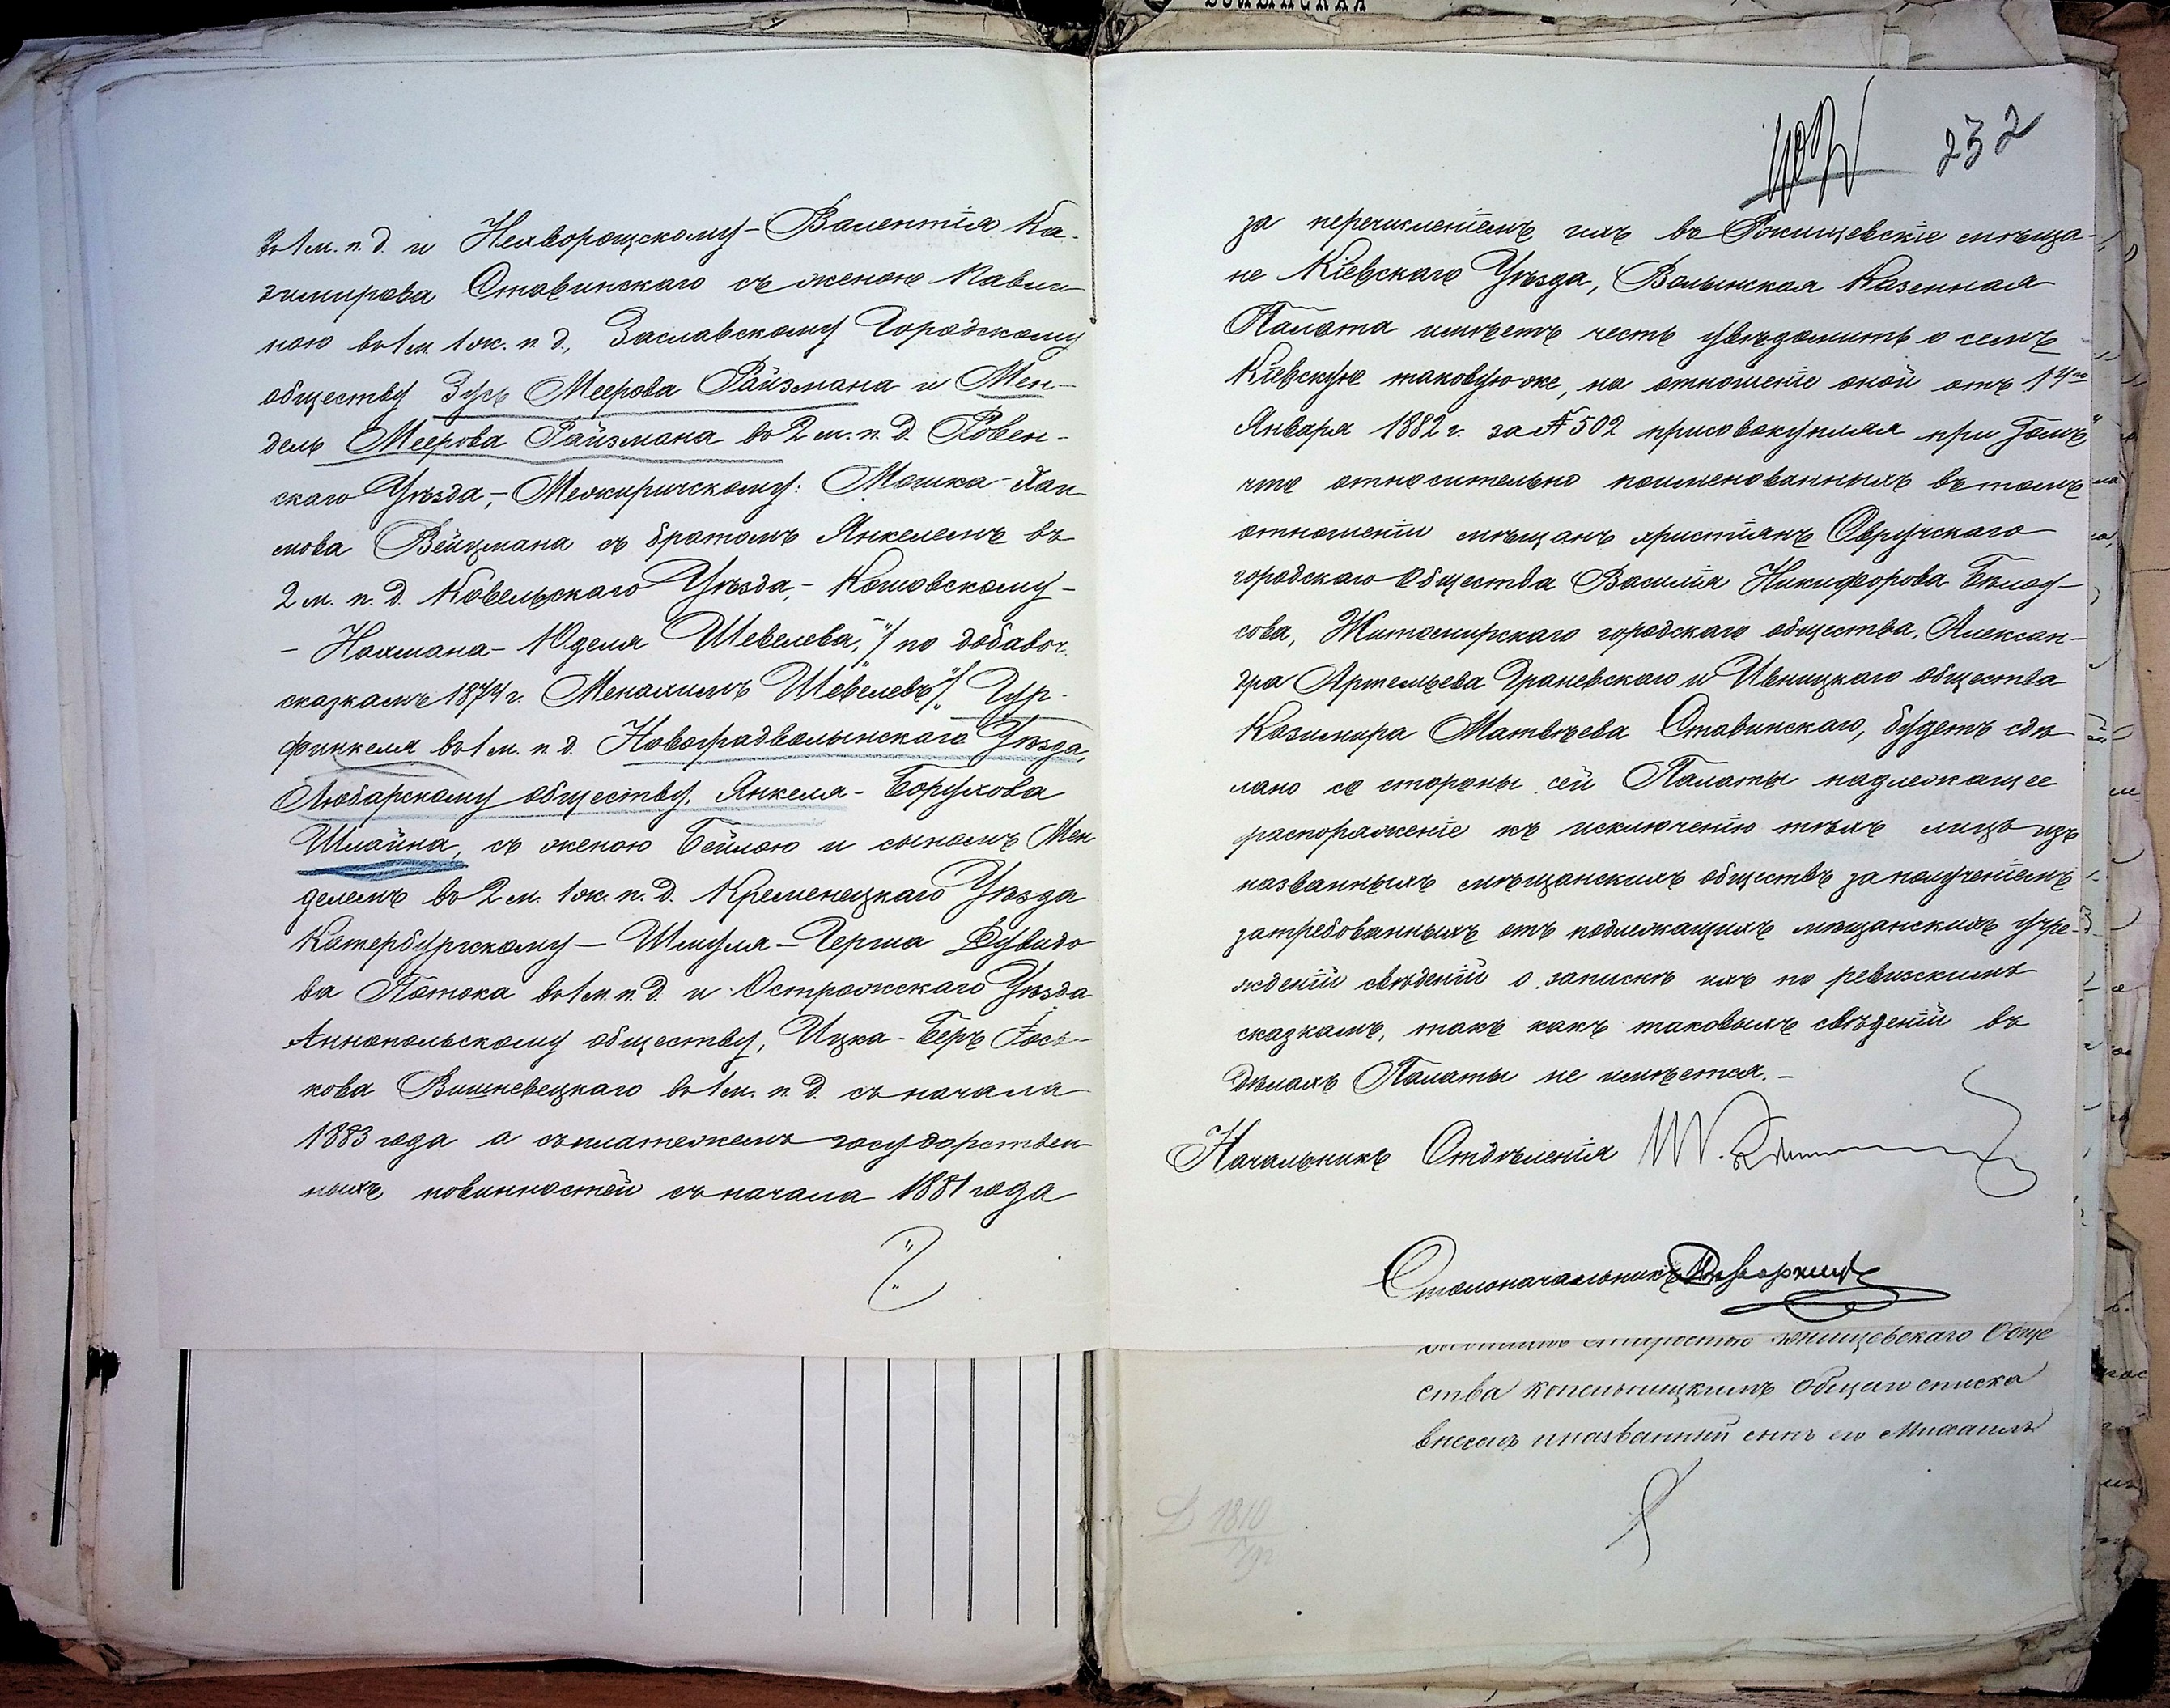 ВОЛЫНСКАЯ
въ 1 м. п. д. и Нехворощскому – Валентія Ка-
зимирова Ставинскаго съ женою Павли-
ною въ 1 м. 1 ж. п. д., Заславскому Городскому
обществу Зусь Меерова Райзмана и Мен-
дель Меерова Райзмана въ 2 м. п. д. Ровен-
скаго Уѣзда, – Межиричскому: Мошка – Хаи
мова Вейцмана съ братомъ Янкелемъ въ
2 м. п. д. Ковельскаго Уѣзда, – Кошовскому –
– Нахмана – Юделя Шевелева, "/ по добавоч.
сказкамъ 1874 г. Менахимъ Шевелевъ "/. Гур-
финкеля въ 1 м. п. д. Новоградволынскаго Уѣзда,
Любарскому обществу, Янкеля – Борухова
Шлайна, съ женою Бейлою и сыномъ Мен
делемъ въ 2 м. 1 ж. п. д. Кременецкаго Уѣзда
Катербургскому – Шмуля – Герша Дувидо
ва Потока въ 1 м. п. д. и Острожскаго Уѣзда
Аннопольскому обществу, Ицка – Беръ Іось-
кова Вишневецкаго въ 1 м. п. д. съ начала
1883 года а съ платежемъ государствен
ныхъ повинностей съ начала 1881 года
232
за перечисленіемъ ихъ въ Ржищевскіе мѣща-
не Кіевскаго Уѣзда, Волынская Казенная
Палата имѣетъ честь увѣдомить о семъ
Кіевскую таковую же, на отношеніе оной отъ 14го
Января 1882 г. за № 502 присовокупляя при томъ
что относительно поименованныхъ въ томъ
отношеніи мѣщанъ христіанъ Овручскаго
городскаго Общества Василія Никифорова Бѣлоу-
сова, Житомирскаго городскаго общества, Алексан-
дра Артемьева Граневскаго и Ивницкаго общества
Казимира Матвѣева Ставинскаго, будетъ сдѣ
лано со стороны сей Палаты надлежащее
распоряженіе къ исключенію тѣхъ лицъ изъ
названныхъ мѣщанскихъ обществъ за полученіемъ
затребованныхъ отъ подлежащихъ мѣщанскихъ учре-
жденій свѣдѣній о запискѣ ихъ по ревизскимъ
сказкамъ, такъ какъ таковыхъ свѣдѣній въ
дѣлахъ Палаты не имѣется. –
Начальникъ Отдѣленія
Столоначальникъ
старостою Ржищевскаго Обще
ства Копельницкимъ общаго списка
внесенъ и названный сынъ его Михаилъ
1810